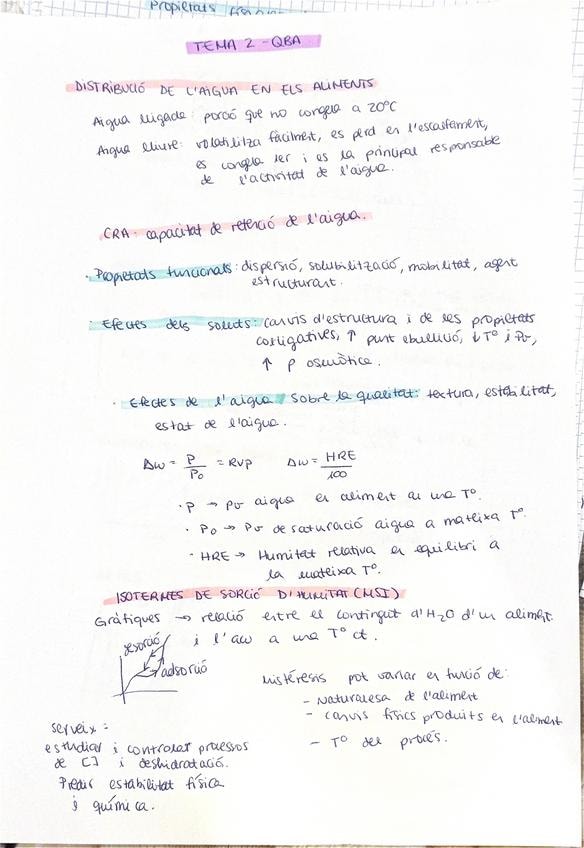 Propietats
TEMA 2 - QBA
DISTRIBUCIÓ DE L'AIGUA EN ELS ALIMENTS
Aigua lligada: porció que no congela a 20ºC
Aigua lliure: volatilitza fàcilment, es perd en l'escalfament,
es congela 1er i es la principal responsable
de l'activitat de l'aigua.
CRA: capacitat de retenció de l'aigua.
· Propietats funcionals: dispersió, solubilització, mobilitat, agent
estructurant.
· Efectes dels soluts: canvis d'estructura i de les propietats
col·ligatives, ↑ punt ebullició, ↓ Tº i Pv,
↑ p osmòtica.
· Efectes de l'aigua sobre la qualitat: textura, estabilitat,
estat de l'aigua.
Aw = P/P₀ = RVP Aw = HRE/100
· P → Pv aigua en aliment a una Tº.
· P₀ → Pv de saturació aigua a mateixa Tº.
· HRE → Humitat relativa en equilibri a
la mateixa Tº.
ISOTERMES DE SORCIÓ D'HUMITAT (MSI)
Gràfiques → relació entre el contingut d'H₂O d'un aliment
i l'aw a una Tº ct.
desorció
adsorció
Histéresis pot variar en funció de:
- Naturalesa de l'aliment
- Canvis físics produits en l'aliment
- Tº del procés.
serveix:
estudiar i controlar processos
de [] i deshidratació.
Predir estabilitat física
i química.